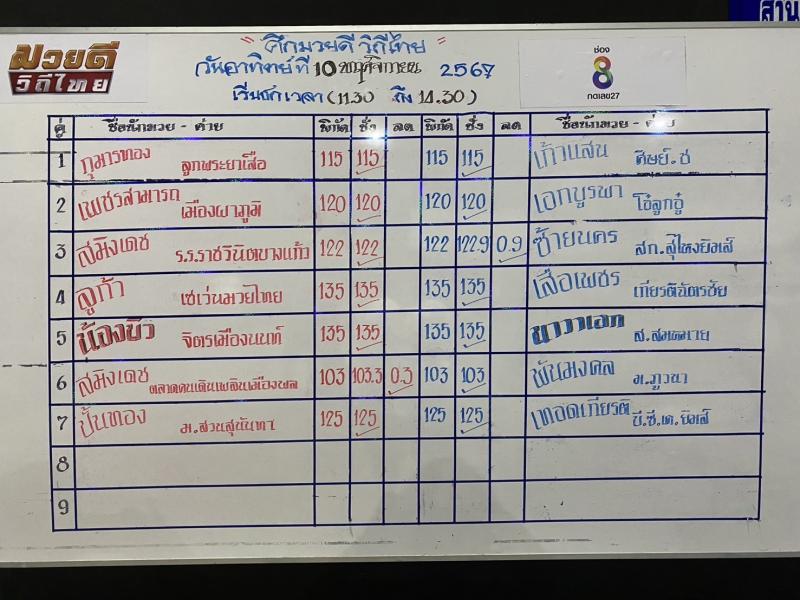 สาน
มวยดี
วิถีไทย
" ศึกมวยดี วิถีไทย "
วันอาทิตย์ที่ 10 พฤศจิกายน 2567
เริ่มชกเวลา (11.30 ถึง 14.30)
ช่อง
8
กดเลข27
คู่ ชื่อนักมวย - ค่าย พิกัด ชั่ง ลด พิกัด ชั่ง ลด ชื่อนักมวย - ค่าย
1 กุมารทอง ลูกพระยาเสือ 115 115 115 115 เก้าแสน ศิษย์.ช
2 เพชรสามารถ เมืองผาภูมิ 120 120 120 120 เอกบูรพา โอ๋ลูกอู๋
3 สมิงเดช ร.ร.ราชวินิตบางแก้ว 122 122 122 122.9 0.9 ซ้ายนคร สก.สุไหงยิมส์
4 ลูก้า เซเว่นมวยไทย 135 135 135 135 เสือเพชร เกียรติฉัตรชัย
5 น้องบิว จิตรเมืองนนท์ 135 135 135 135 นาวาเอก ส.สมหมาย
6 สมิงเดช ตลาดคนเดินเพลินเมืองพล 103 103.3 0.3 103 103 พันมงคล ม.ภูวนา
7 ปั้นทอง ม.สวนสุนันทา 125 125 125 125 เทอดเกียรติ บี.ซี.เค.ยิมส์
8
9